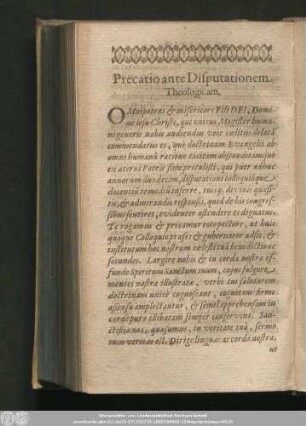 Precatio ante Disputationem
Theologicam.
OMnipotens & misericors Fili DEI, Domi-
ne Iesu Christe, qui unicus Magister huma-
ni generis nobis audiendus voce cœlitus delatâ
commendatus es, quò doctrinam Evangelii ab
omni humanâ ratione
ex æterni Patris sinu protulisti, qui puer adhuc
annorum duodecim, disputationi
docentiū temet inserere, tuisq́; divinis quæsti-
is, & admirandis responsis, quod de his congres-
sibus sentires, evidenter ostendere es dignatus:
Te rogamus & precamur
quoque Colloquio præses & gubernator adsis, &
institutum hoc nostrum cœlesti tuâ benedictione
secundes. Largire nobis & in corda nostra ef-
funde Spiritum Sanctum tuum, cujus fulgore
mentes nostræ illustratæ, verbi tui salutarem
doctrinam unicè cognoscant, cognitam firmo
assensu amplectantur, & semel apprehensam in
corde puro illibatam semper conservent. San-
ctifica nos, quæsumus, in veritate tuâ, sermo
tuus veritas est. Dirige linguas ac corda nostra,
ut